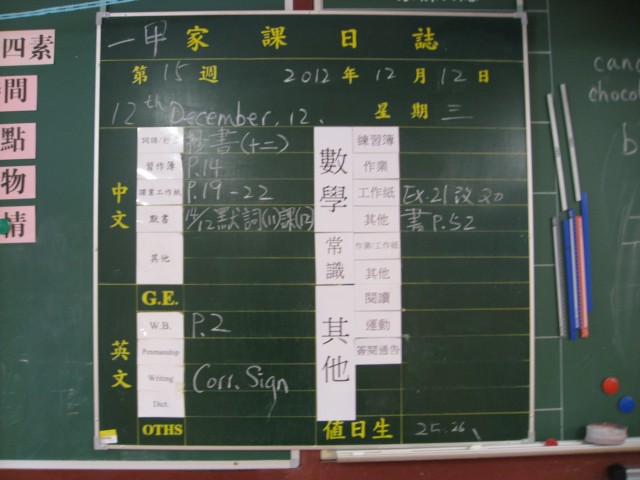 四素
間
點
物
情
can
choco
b
一甲 家課日誌
第 15 週 2012 年 12 月 12 日
12th December, 12. 星期 三
中文
抄書(十二)
習作簿 P.14
課業工作紙 P.19-22
默書 14/12默詞(11)課(12)
其他
G.E.
英文
W.B. P.2
Penmanship
Writing Corr. Sign
Dict.
OTHS
數學
練習簿
作業
工作紙 Ex.21改
其他 書P.52
常識
作業/工作紙
其他
其他
閱讀
運動
簽閱通告
值日生 25.26